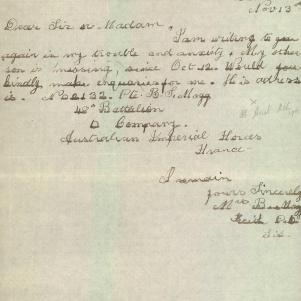 Nov 13th
Dear Sir or Madam,
I am writing to you
again in my trouble and anxiety. My other
son is missing since Oct. 12. Would you
kindly make enquiries for me. His address
is. No 2132. Pte. B. J. Mogg
Battalion
D Company.
Australian Imperial Forces
France
I remain
Yours Sincerely
Mrs
Keith P.O.
S.A.